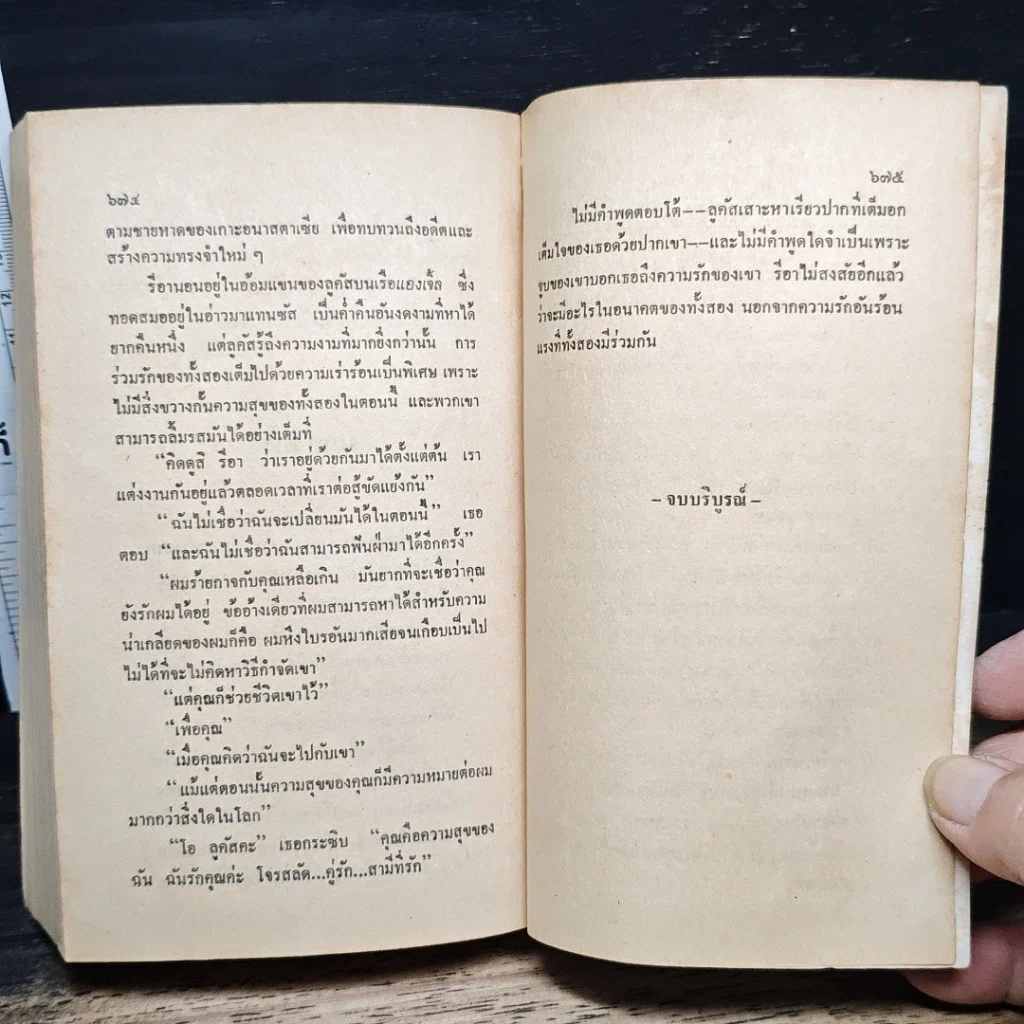 ๖๗๔
ตามชายหาดของเกาะอนาสตาเซีย เพื่อทบทวนถึงอดีตและ
สร้างความทรงจำใหม่ ๆ
รีอานอนอยู่ในอ้อมแขนของลูคัสบนเรือแยงเจิ้ล ซึ่ง
ทอดสมออยู่ในอ่าวมาแทนซัส เป็นค่ำคืนอันงดงามที่หาได้
ยากคืนหนึ่ง แต่ลูคัสรู้ถึงความงามที่มากยิ่งกว่านั้น การ
ร่วมรักของทั้งสองเต็มไปด้วยความเร่าร้อนเป็นพิเศษ เพราะ
ไม่มีสิ่งขวางกั้นความสุขของทั้งสองในตอนนี้ และพวกเขา
สามารถลิ้มรสมันได้อย่างเต็มที่
“คิดดูสิ รีอา ว่าเราอยู่ด้วยกันมาได้ตั้งแต่ต้น เรา
แต่งงานกันอยู่แล้วตลอดเวลาที่เราต่อสู้ขัดแย้งกัน”
“ฉันไม่เชื่อว่าฉันจะเปลี่ยนมันได้ในตอนนี้” เธอ
ตอบ “และฉันไม่เชื่อว่าฉันสามารถฟันฝ่ามาได้อีกครั้ง”
“ผมร้ายกาจกับคุณเหลือเกิน มันยากที่จะเชื่อว่าคุณ
ยังรักผมได้อยู่ ข้ออ้างเดียวที่ผมสามารถหาได้สำหรับความ
น่าเกลียดของผมก็คือ ผมหึงไบรอันมากเสียจนเกือบเป็นไป
ไม่ได้ที่จะไม่คิดหาวิธีกำจัดเขา”
“แต่คุณก็ช่วยชีวิตเขาไว้”
“เพื่อคุณ”
“เมื่อคุณคิดว่าฉันจะไปกับเขา”
“แม้แต่ตอนนั้นความสุขของคุณก็มีความหมายต่อผม
มากกว่าสิ่งใดในโลก”
“โอ ลูคัสคะ” เธอกระซิบ “คุณคือความสุขของ
ฉัน ฉันรักคุณค่ะ โจรสลัด...คู่รัก...สามีที่รัก”
๖๗๕
ไม่มีคำพูดตอบโต้--ลูคัสเสาะหาเรียวปากที่เต็มอก
เต็มใจของเธอด้วยปากเขา--และไม่มีคำพูดใดจำเป็นเพราะ
จูบของเขาบอกเธอถึงความรักของเขา รีอาไม่สงสัยอีกแล้ว
ว่าจะมีอะไรในอนาคตของทั้งสอง นอกจากความรักอันร้อน
แรงที่ทั้งสองมีร่วมกัน
- จบบริบูรณ์ -